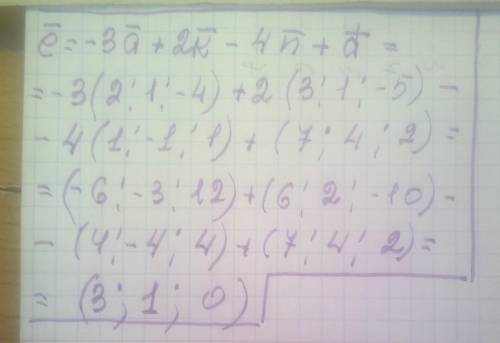 e̅ = -3a̅ + 2k̅ - 4n̅ + d̅ =
= -3(2; 1; -4) + 2 (3; 1; -5) -
- 4(1; -1; 1) + (7; 4; 2) =
= (-6; -3; 12) + (6; 2; -10) -
- (4; -4; 4) + (7; 4; 2) =
= (3; 1; 0)